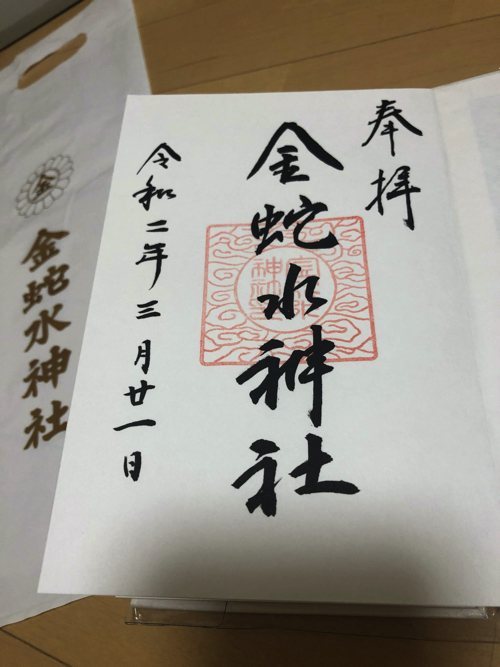 奉拝
金蛇水神社
令和二年三月廿一日
金
金蛇水神社